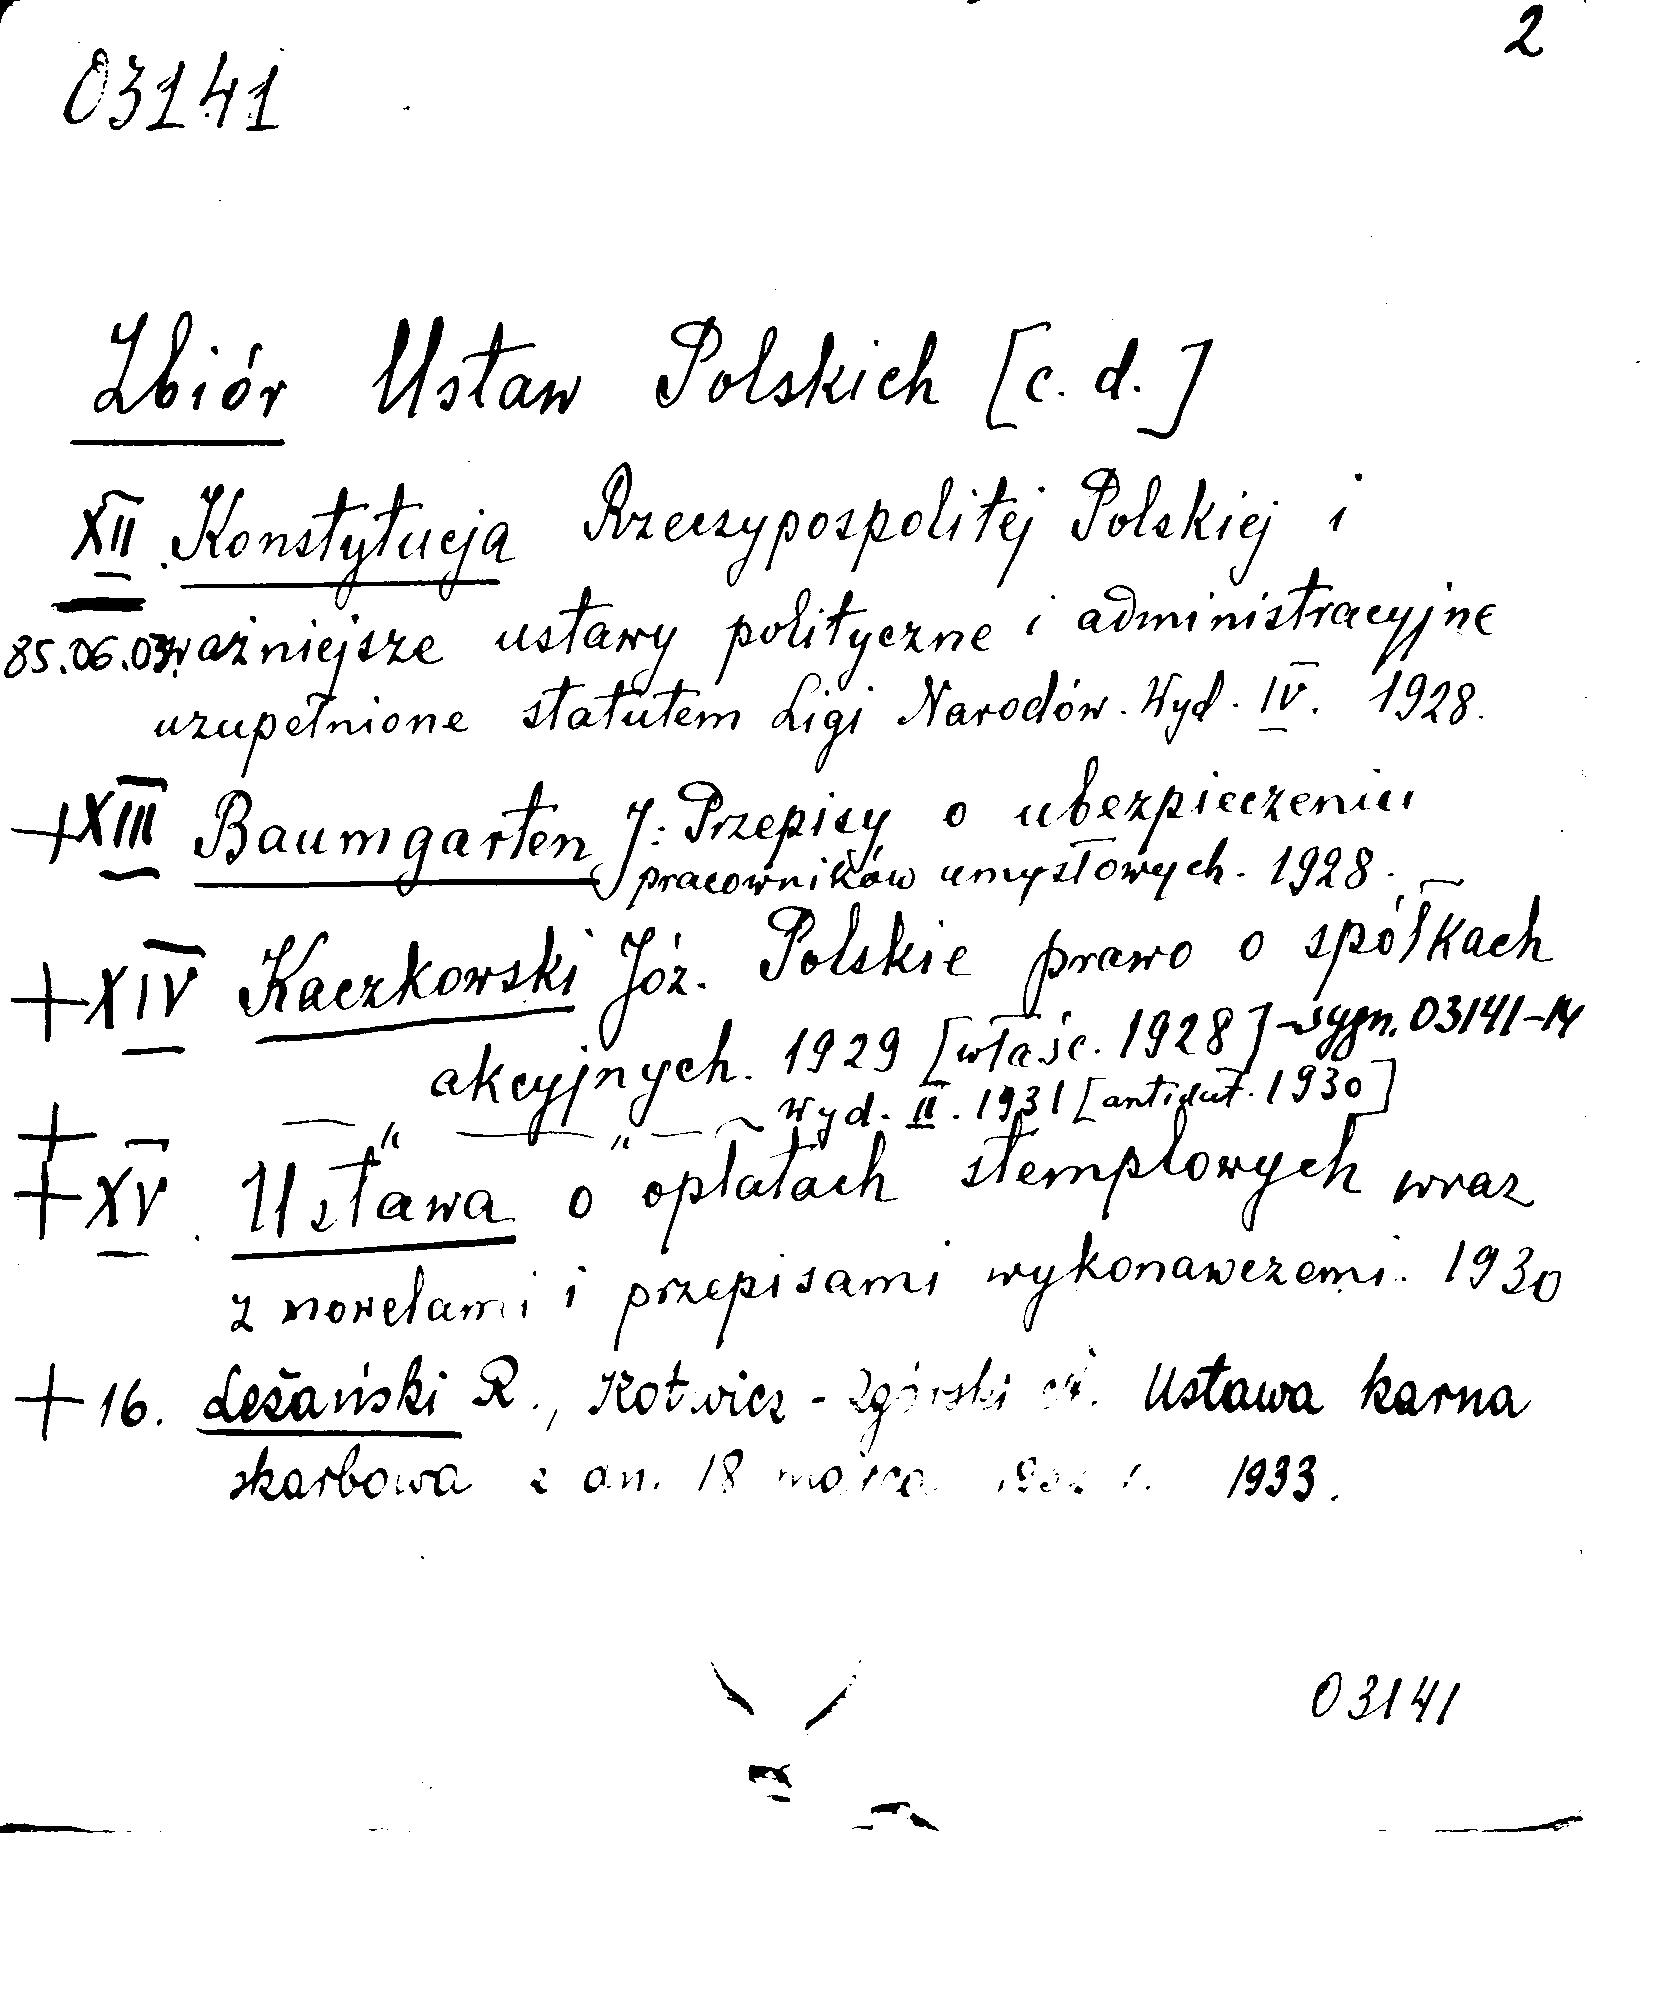 2
03141
Zbiór Ustaw Polskich [c. d.]
XII. Konstytucja Rzeczypospolitej Polskiej i
85.06.03 ważniejsze ustawy polityczne i administracyjne
uzupełnione statutem Ligi Narodów. Wyd. IV. 1928.
+XIII Baumgarten J. Przepisy o ubezpieczeniu
pracowników umysłowych. 1928.
+XIV Kaczkowski Józ. Polskie prawo o spółkach
akcyjnych. 1929 [właśc. 1928] - sygn. 03141-14
+ — " — " — Wyd. II. 1931 [antidat. 1930]
+XV. Ustawa o opłatach stemplowych wraz
z nowelami i przepisami wykonawczemi. 1930
+16. Leżański R., Kotwicz-Zgórski Ustawa karna
skarbowa z dn. 18 marca 1932 r. 1933.
03141